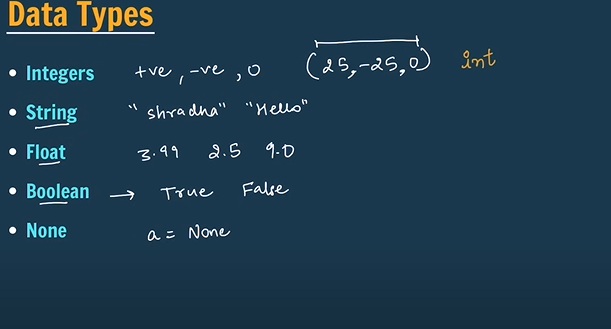 Data Types
• Integers +ve, -ve, 0 (25, -25, 0) int
• String "shradha" "Hello"
• Float 3.99 2.5 9.0
• Boolean → True False
• None a = None